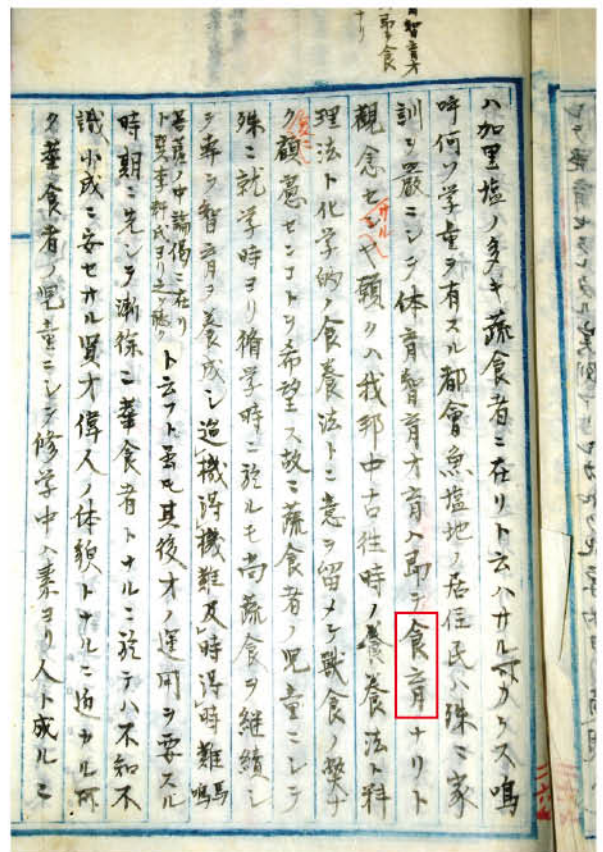 智育才
即チ食
ナリ
ハ加里塩ノ多キ蔬食者ニ在リト云ハサル可カラス嗚
呼何ソ学童ヲ有スル都會魚塩地ノ居住民ハ殊ニ家
訓ヲ厳ニシテ体育智育才育ハ即チ食育ナリト
観念セサルヤ願クハ我邦中古往時ノ食養法ト料
理法ト化学的ノ食養法トニ意ヲ留メテ獣食ノ弊ナ
ク顧慮センコトヲ希望ス故ニ蔬食者ノ児童ニシテ
殊ニ就学時ヨリ脩学時ニ於ルモ尚蔬食ヲ継続シ
テ専ラ智育ヲ養成シ迨機得機難及時得時難
菩薩ノ中論偈ニ在リ
ト云フト雖モ其後才ノ運用ヲ要スル
時期ニ先ンテ漸徐ニ葷食者トナルニ於テハ不知不
識小成ニ安セサル賢才偉人ノ体貌トナルニ近カル可
ク葷食者ノ児童ニシテ修学中ハ素ヨリ人ト成ルニ